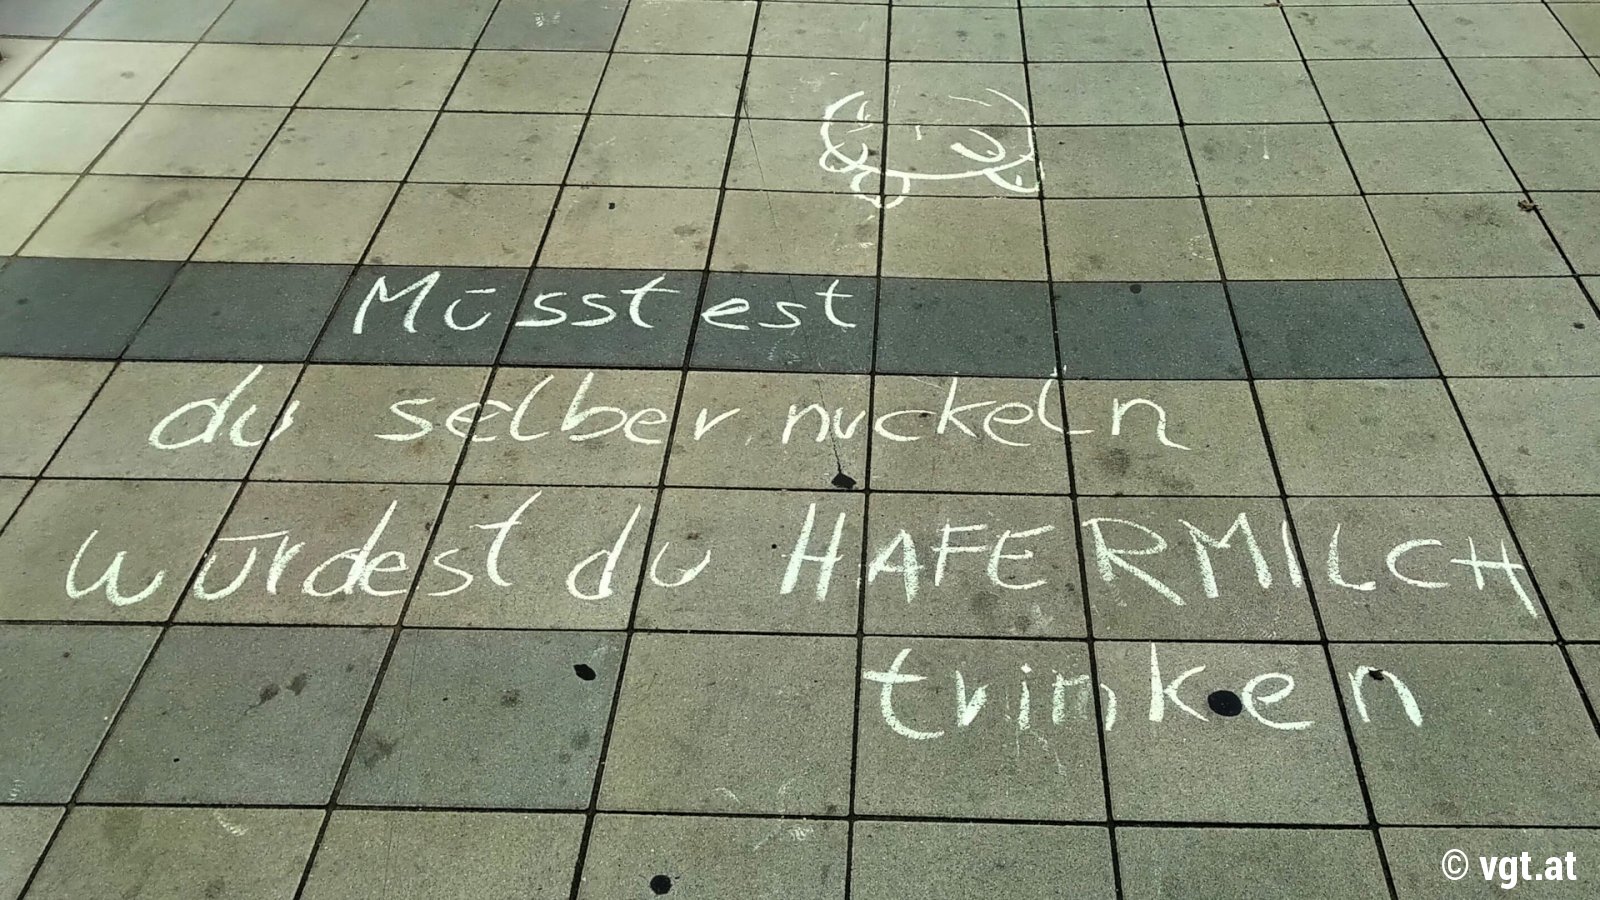 Müsstest
du selber nuckeln
würdest du HAFERMILCH
trinken
© vgt.at